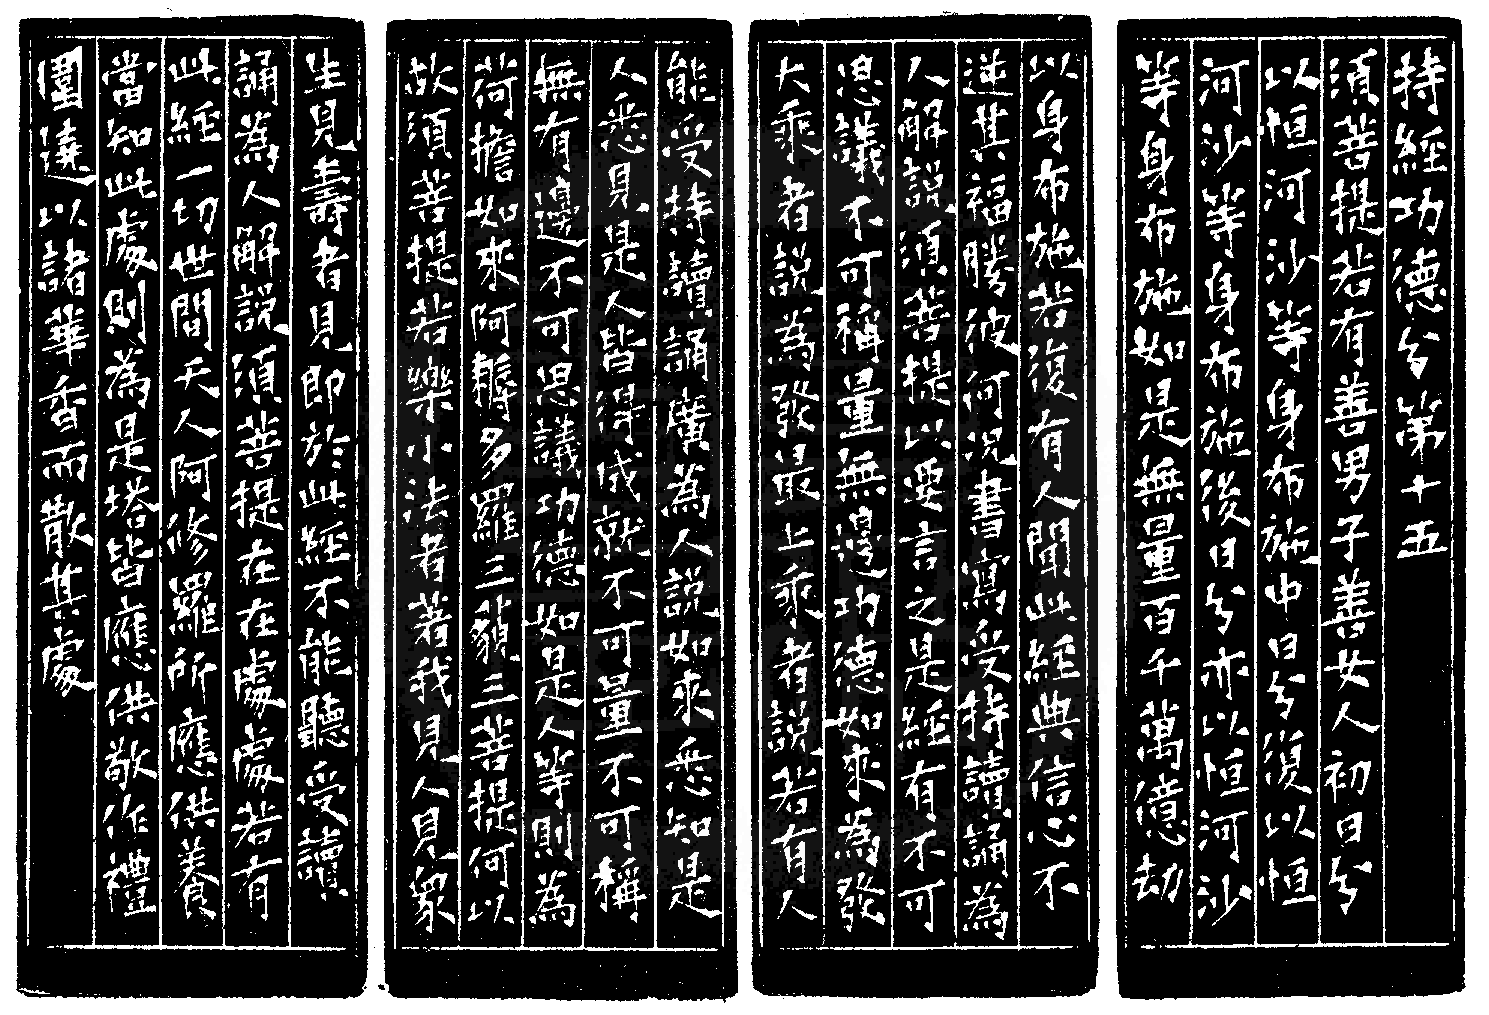 持經功德分第十五
須菩提若有善男子善女人初日分
以恒河沙等身布施中日分復以恒
河沙等身布施後日分亦以恒河沙
等身布施如是無量百千萬億劫
以身布施若復有人聞此經典信心不
逆其福勝彼何況書寫受持讀誦為
人解說須菩提以要言之是經有不可
思議不可稱量無邊功德如來為發
大乘者說為發最上乘者說若有人
能受持讀誦廣為人說如來悉知是
人悉見是人皆得成就不可量不可稱
無有邊不可思議功德如是人等則為
荷擔如來阿耨多羅三藐三菩提何以
故須菩提若樂小法者著我見人見眾
生見壽者見即於此經不能聽受讀
誦為人解說須菩提在在處處若有
此經一切世間天人阿修羅所應供養
當知此處則為是塔皆應供敬作禮
圍遶以諸華香而散其處